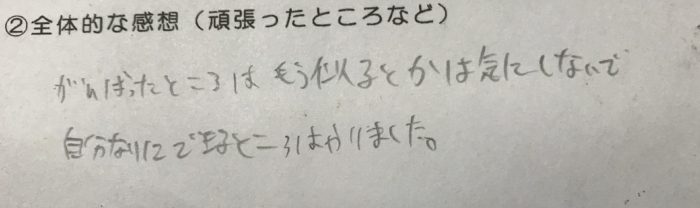 ②全体的な感想（頑張ったところなど）
がんばったところは もう似るとかは気にしないで
自分なりにできるところはやりました。